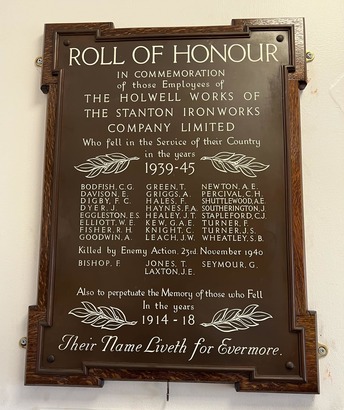 ROLL OF HONOUR
IN COMMEMORATION
of those Employees of
THE HOLWELL WORKS OF
THE STANTON IRONWORKS
COMPANY LIMITED
Who fell in the Service of their Country
in the years
1939-45
BODFISH, C.G. GREEN, T. NEWTON, A.E.
DAVISON, E. GRIGGS, A. PERCIVAL, C.H.
DIGBY, F.C. HALES, F. SHUTTLEWOOD, A.E.
DYER, J. HAYNES, F.A. SOUTHERINGTON, J.
EGGLESTON, E.S. HEALEY, J.T. STAPLEFORD, C.J.
ELLIOTT, W.E. KEW, G.A.E. TURNER, F.
FISHER, R.H. KNIGHT, C. TURNER, J.S.
GOODWIN, A. LEACH, J.W. WHEATLEY, S.B.
Killed by Enemy Action. 23rd. November 1940
BISHOP, F. JONES, T. SEYMOUR, G.
LAXTON, J.E.
Also to perpetuate the Memory of those who Fell
In the years
1914-18
Their Name Liveth for Evermore.